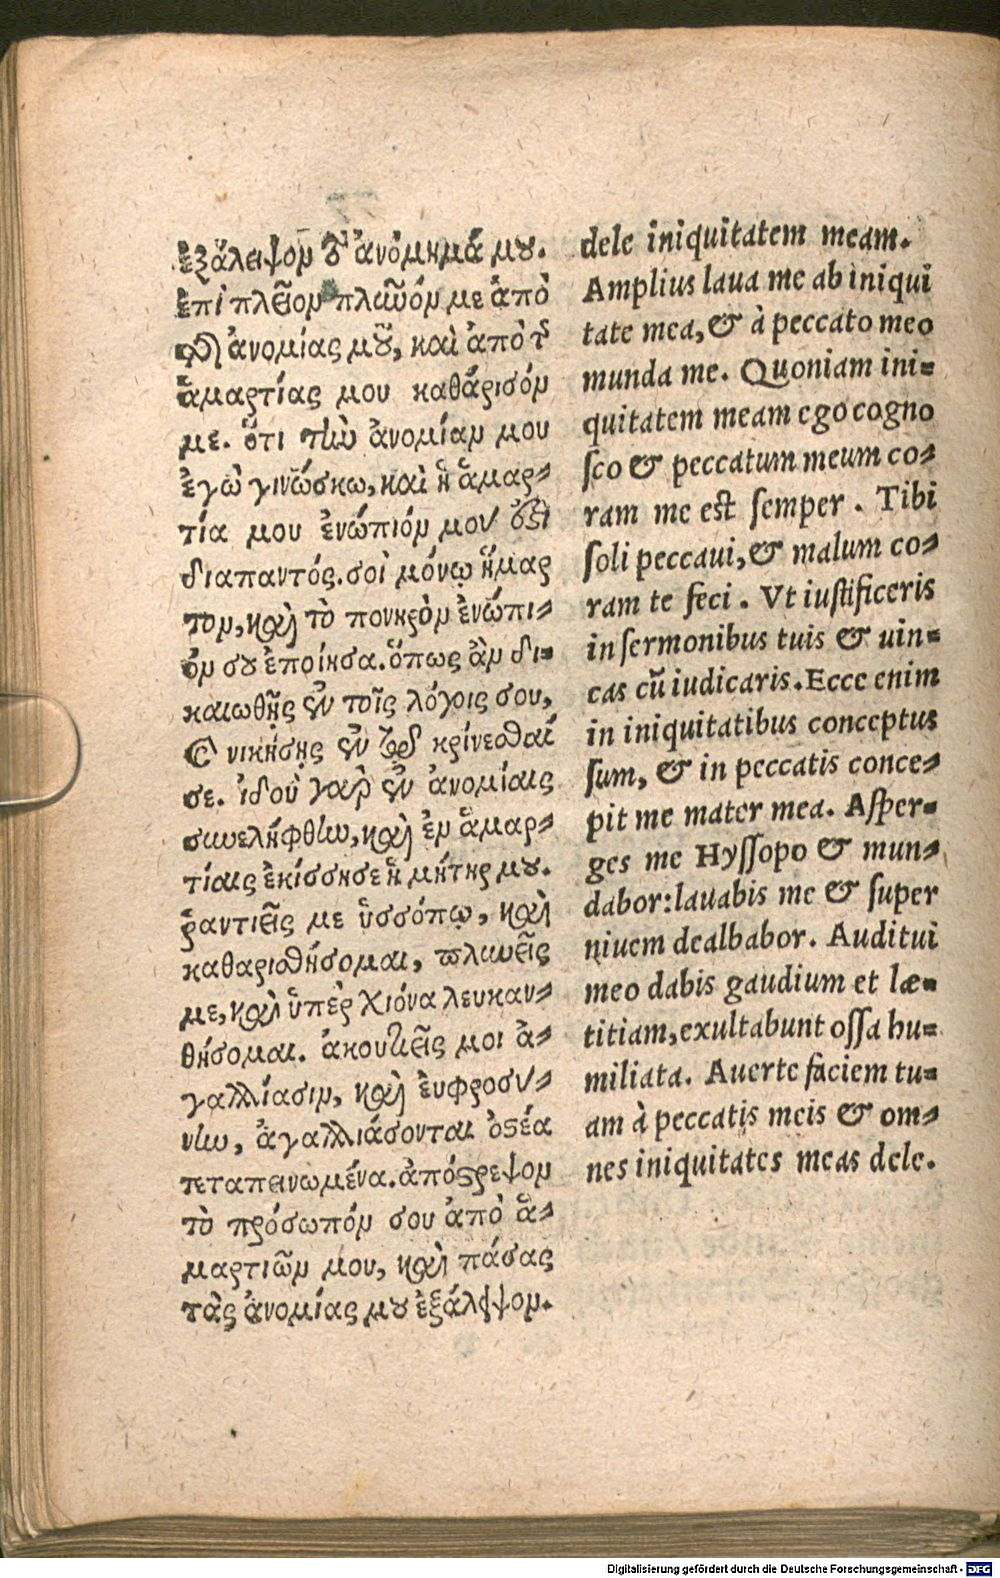 ἐξάλειψον τὸ ἀνόμημά μου.
ἐπὶ πλεῖον πλῦνόν με ἀπὸ
τῆς ἀνομίας μοῦ, καὶ ἀπὸ τῆς
ἁμαρτίας μου καθάρισόν
με. ὅτι τὴν ἀνομίαν μου
ἐγὼ γινώσκω, καὶ ἡ ἁμαρ-
τία μου ἐνώπιόν μου ἐστὶ
διαπαντός. σοὶ μόνῳ ἥμαρ
τον, καὶ τὸ πονηρὸν ἐνώπι-
όν σου ἐποίησα. ὅπως ἂν δι-
καιωθῇς ἐν τοῖς λόγοις σου,
καὶ νικήσῃς ἐν τῷ κρίνεσθαί
σε. ἰδοὺ γὰρ ἐν ἀνομίαις
συνελήφθην, καὶ ἐν ἁμαρ-
τίαις ἐκίσσησε ἡ μήτηρ μου.
ῥαντιεῖς με ὑσσόπῳ, καὶ
καθαρισθήσομαι, πλυνεῖς
με, καὶ ὑπὲρ χιόνα λευκαν-
θήσομαι. ἀκουτιεῖς μοι ἀ-
γαλλίασιν, καὶ ἐυφροσύ-
νην, ἀγαλλιάσονται ὀστέα
τεταπεινωμένα. ἀπόστρεψον
τὸ πρόσωπόν σου ἀπὸ ἁ-
μαρτιῶν μου, καὶ πάσας
τὰς ἀνομίας μου ἐξάλειψον.
dele iniquitatem meam.
Amplius laua me ab iniqui
tate mea, & à peccato meo
munda me. Quoniam ini-
quitatem meam ego cogno
sco & peccatum meum co-
ram me est semper. Tibi
soli peccaui, & malum co-
ram te feci. Vt iustificeris
in sermonibus tuis & uin-
cas cũ iudicaris. Ecce enim
in iniquitatibus conceptus
sum, & in peccatis conce-
pit me mater mea. Asper-
ges me Hyssopo & mun-
dabor: lauabis me & super
niuem dealbabor. Auditui
meo dabis gaudium et læ-
titiam, exultabunt ossa hu-
miliata. Auerte faciem tu-
am à peccatis meis & om-
nes iniquitates meas dele.
Digitalisierung gefördert durch die Deutsche Forschungsgemeinschaft - DFG